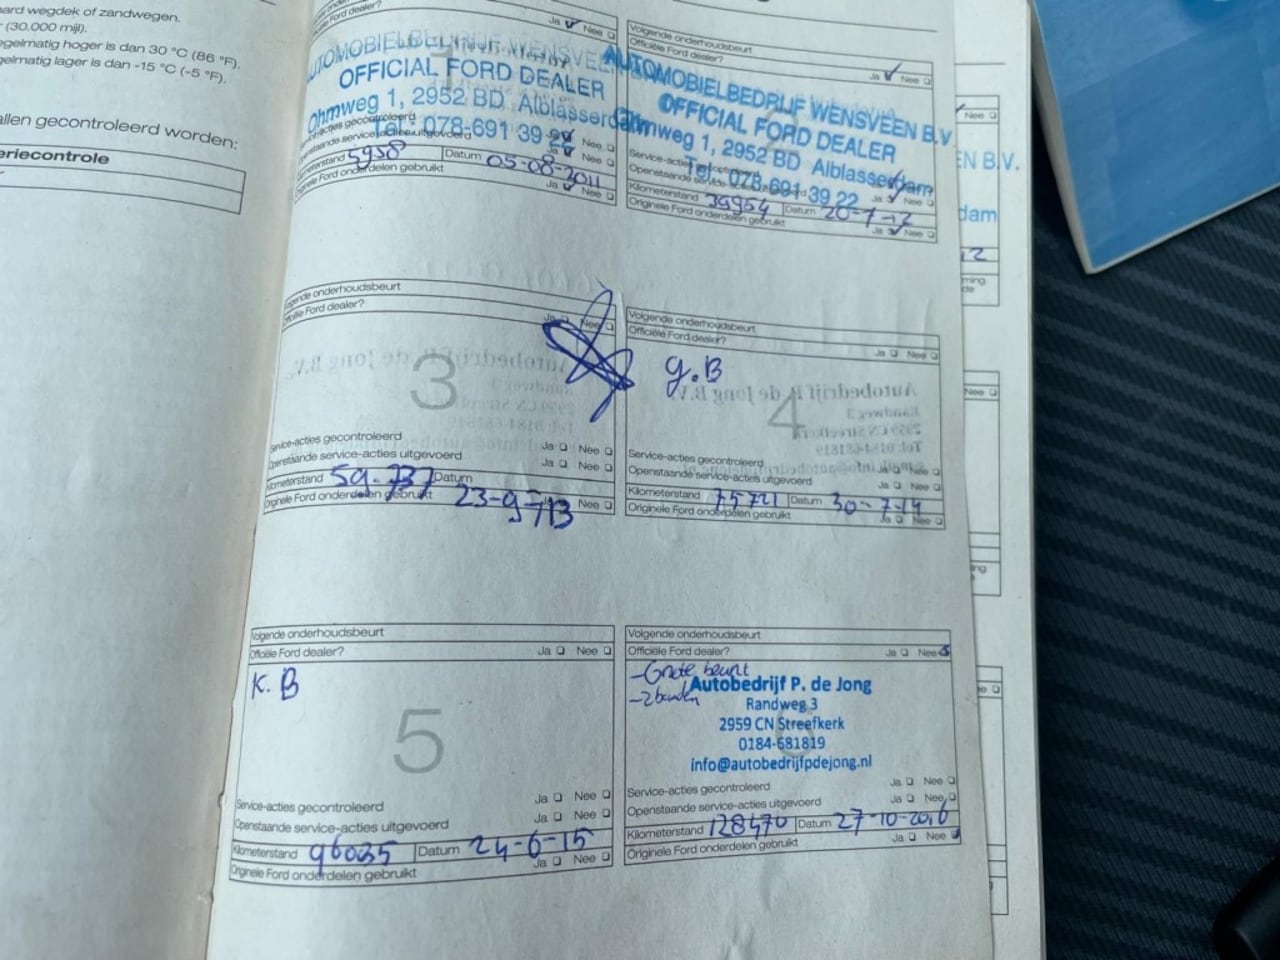 aard wegdek of zandwegen.
(30.000 mijl).
egelmatig hoger is dan 30 °C (86 °F).
gelmatig lager is dan -15 °C (-5 °F).
allen gecontroleerd worden:
eriecontrole
Ja Nee
AUTOMOBIELBEDRIJF WENSVEEN
OFFICIAL FORD DEALER
Ohmweg 1, 2952 BD Alblasserdam
Tel. 078-691 39 22
Openstaande service-acties uitgevoerd
Ja Nee
Kilometerstand 5958 Datum 05-08-2011
Originele Ford onderdelen gebruikt
Ja Nee
Volgende onderhoudsbeurt
Officiële Ford dealer?
Ja Nee
AUTOMOBIELBEDRIJF WENSVEEN B.V.
OFFICIAL FORD DEALER
Ohmweg 1, 2952 BD Alblasserdam
Tel. 078-691 39 22
Ja Nee
Kilometerstand 39954 Datum 20-7-12
Originele Ford onderdelen gebruikt
Ja Nee
Nee
EN B.V.
dam
12
Volgende onderhoudsbeurt
Officiële Ford dealer?
Ja Nee
3
Service-acties gecontroleerd
Ja Nee
Openstaande service-acties uitgevoerd
Ja Nee
Kilometerstand 59-737 Datum 23-9-13
Originele Ford onderdelen gebruikt
Nee
Volgende onderhoudsbeurt
Officiële Ford dealer?
Ja Nee
g.B
4
Service-acties gecontroleerd
Ja Nee
Openstaande service-acties uitgevoerd
Ja Nee
Kilometerstand 75721 Datum 30-7-14
Originele Ford onderdelen gebruikt
Ja Nee
Nee
Volgende onderhoudsbeurt
Officiële Ford dealer?
Ja Nee
K. B
5
Service-acties gecontroleerd
Ja Nee
Openstaande service-acties uitgevoerd
Ja Nee
Kilometerstand 96035 Datum 24-6-15
Originele Ford onderdelen gebruikt
Ja Nee
Volgende onderhoudsbeurt
Officiële Ford dealer?
Ja Nee
-Grote beurt
-2 banden
Autobedrijf P. de Jong
Randweg 3
2959 CN Streefkerk
0184-681819
info@autobedrijfpdejong.nl
6
Service-acties gecontroleerd
Ja Nee
Openstaande service-acties uitgevoerd
Ja Nee
Kilometerstand 128470 Datum 27-10-2016
Originele Ford onderdelen gebruikt
Ja Nee